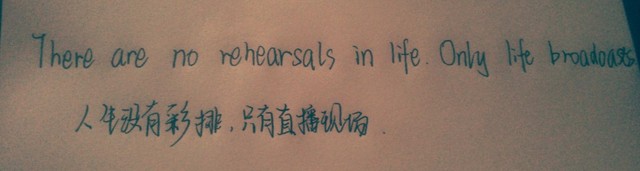 There are no rehearsals in life. Only life broadcasts
人生没有彩排，只有直播现场.